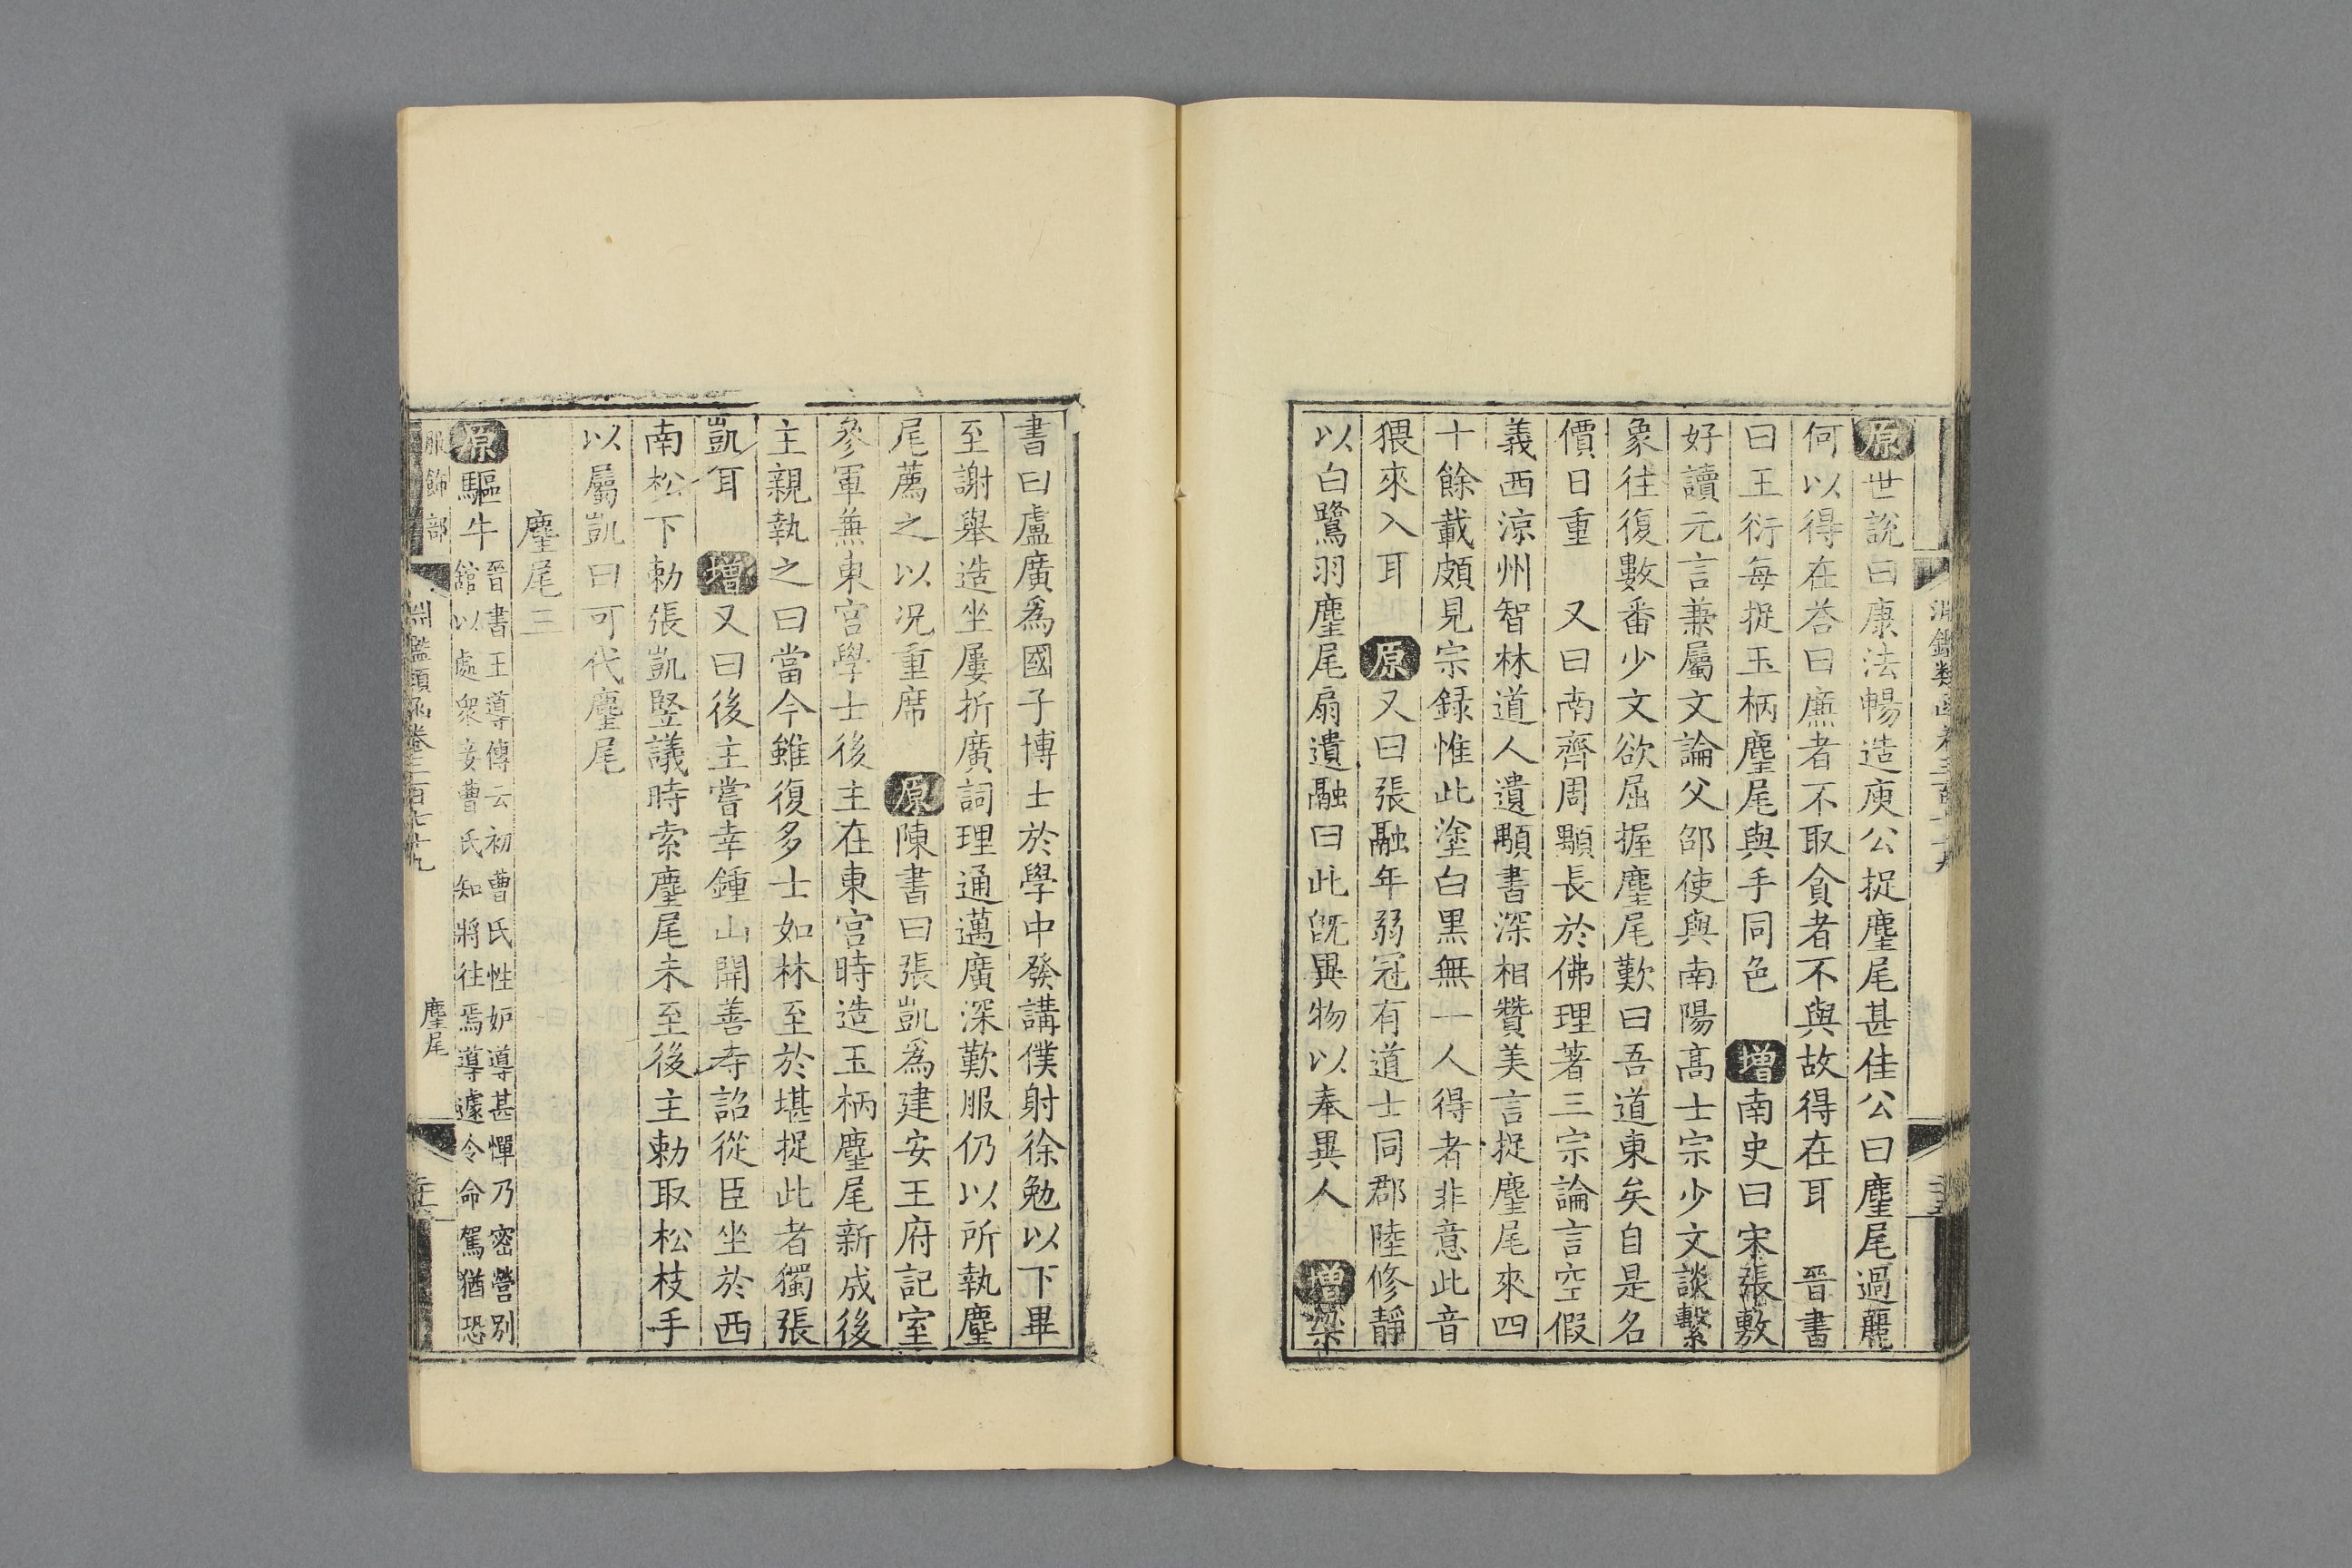 原世說曰康法暢造庾公捉麈尾甚佳公曰麈尾過麗
何以得在荅曰廉者不取貪者不與故得在耳　晉書
曰王衍每捉玉柄麈尾與手同色　增南史曰宋張敷
好讀元言兼屬文論父邵使與南陽高士宗少文談繫
象往復數番少文欲屈握麈尾歎曰吾道東矣自是名
價日重　又曰南齊周顒長於佛理著三宗論言空假
義西涼州智林道人遺顒書深相贊美言捉麈尾來四
十餘載頗見宗録惟此塗白黑無一人得者非意此音
猥來入耳　原又曰張融年弱冠有道士同郡陸修靜
以白鷺羽麈尾扇遺融曰此既異物以奉異人　增梁
書曰盧廣爲國子博士於學中發講僕射徐勉以下畢
至謝舉造坐屢折廣詞理通邁廣深歎服仍以所執麈
尾薦之以况重席　原陳書曰張凱爲建安王府記室
參軍兼東宮學士後主在東宮時造玉柄麈尾新成後
主親執之曰當今雖復多士如林至於堪捉此者獨張
凱耳　增又曰後主嘗幸鍾山開善寺詔從臣坐於西
南松下勅張凱竪議時索麈尾未至後主勅取松枝手
以屬凱曰可代麈尾
麈尾三
原驅牛
晉書王導傳云初曹氏性妒導甚憚乃密營別
舘以處衆妾曹氏知將往焉導遽令命駕猶恐
服飾部　淵鑑類函卷三百七十九　麈尾